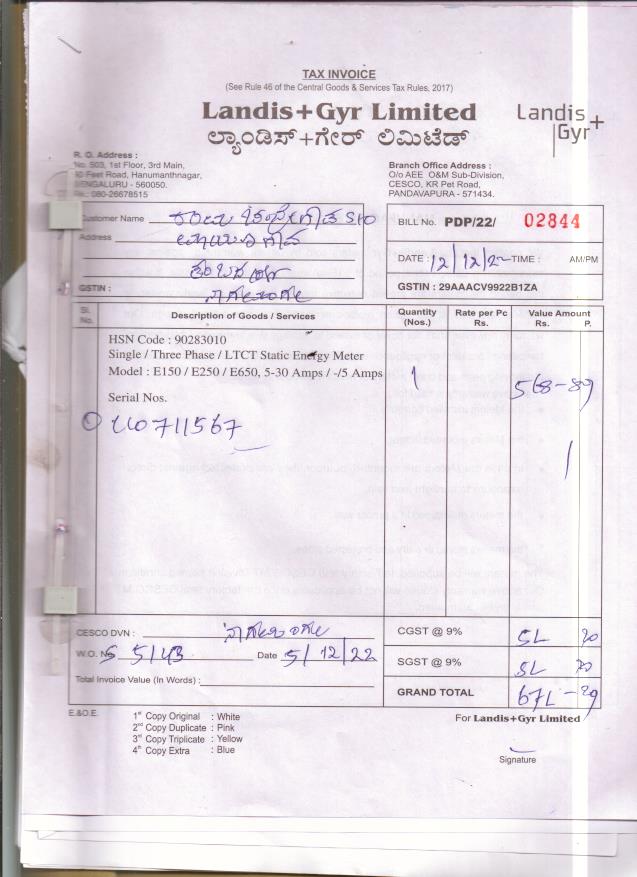 TAX INVOICE
(See Rule 46 of the Central Goods & Services Tax Rules, 2017)
Landis+Gyr Limited
ಲ್ಯಾಂಡಿಸ್+ಗೇರ್ ಲಿಮಿಟೆಡ್
Landis
Gyr+
R. O. Address :
No. 503, 1st Floor, 3rd Main,
Feet Road, Hanumanthnagar,
BENGALURU - 560050.
080-26678515
Branch Office Address :
O/o AEE O&M Sub-Division,
CESCO, KR Pet Road,
PANDAVAPURA - 571434.
Customer Name S/O
Address
GSTIN :
BILL No. PDP/22/ 02844
DATE : 12/12/22 TIME : AM/PM
GSTIN : 29AAACV9922B1ZA
Sl. No. Description of Goods / Services Quantity (Nos.) Rate per Pc Rs. Value Amount Rs. P.
HSN Code : 90283010
Single / Three Phase / LTCT Static Energy Meter
Model : E150 / E250 / E650, 5-30 Amps / -/5 Amps 1 568-89
Serial Nos.
CESCO DVN :
CGST @ 9%
W.O. No. 5143 Date 5/12/22
SGST @ 9%
Total Invoice Value (In Words) :
GRAND TOTAL
E.&O.E.
1st Copy Original : White
2nd Copy Duplicate : Pink
3rd Copy Triplicate : Yellow
4th Copy Extra : Blue
For Landis+Gyr Limited
Signature